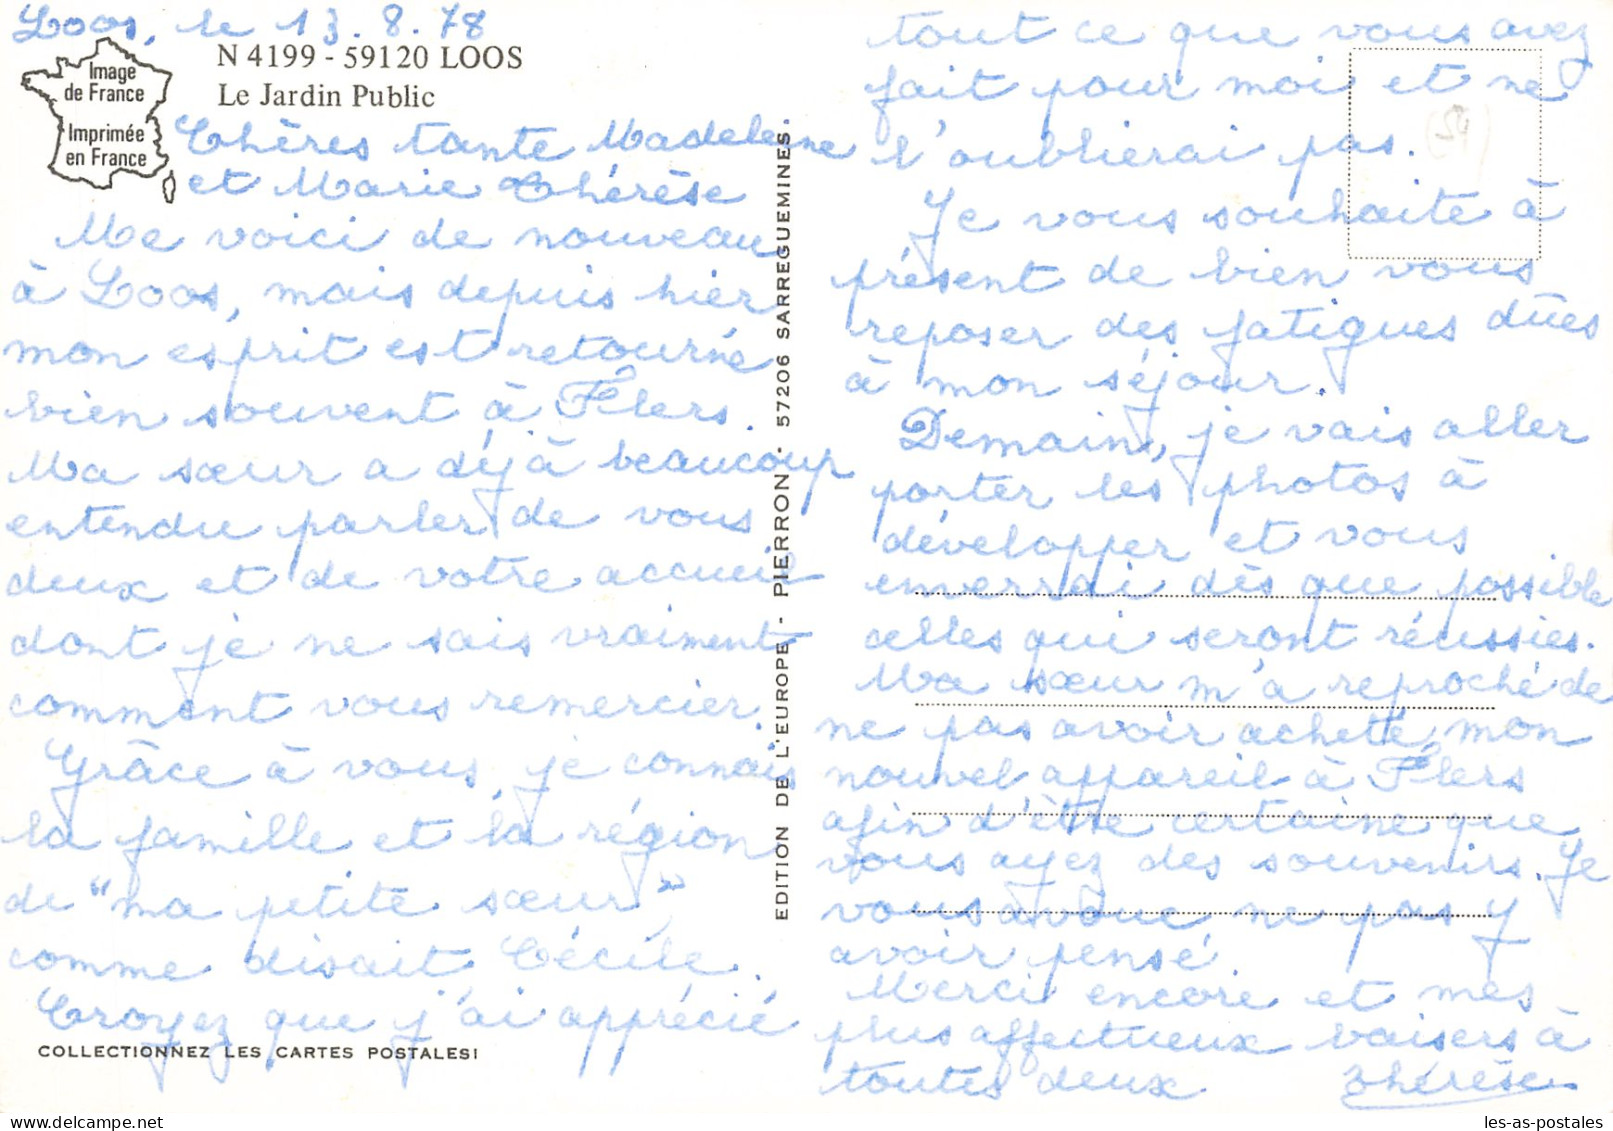 Loos, le 13.8.78
Image
de France
Imprimée
en France
N 4199 - 59120 LOOS
Le Jardin Public
Chères tante Madeleine
et Marie Thérèse
Me voici de nouveau
à Loos, mais depuis hier
mon esprit est retourné
bien souvent à Flers.
Ma sœur a déjà beaucoup
entendu parler de vous
deux et de votre accueil
dont je ne sais vraiment
comment vous remercier.
Grâce à vous, je connais
la famille et la région
de "ma petite sœur"
comme disait Cécile.
Croyez que j'ai apprécié
COLLECTIONNEZ LES CARTES POSTALES!
EDITION DE L'EUROPE - PIERRON - 57206 SARREGUEMINES.
tout ce que vous avez
fait pour moi et ne
l'oublierai pas.
Je vous souhaite à
présent de bien vous
reposer des fatigues dûes
à mon séjour.
Demain, je vais aller
porter les photos à
développer et vous
enverrai dès que possible
celles qui seront réussies.
Ma sœur m'a reproché de
ne pas avoir acheté mon
nouvel appareil à Flers
afin d'être certaine que
vous ayez des souvenirs. Je
vous avoue ne pas y
avoir pensé
Merci encore et mes
plus affectueux baisers à
toutes deux Thérèse
les-as-postales